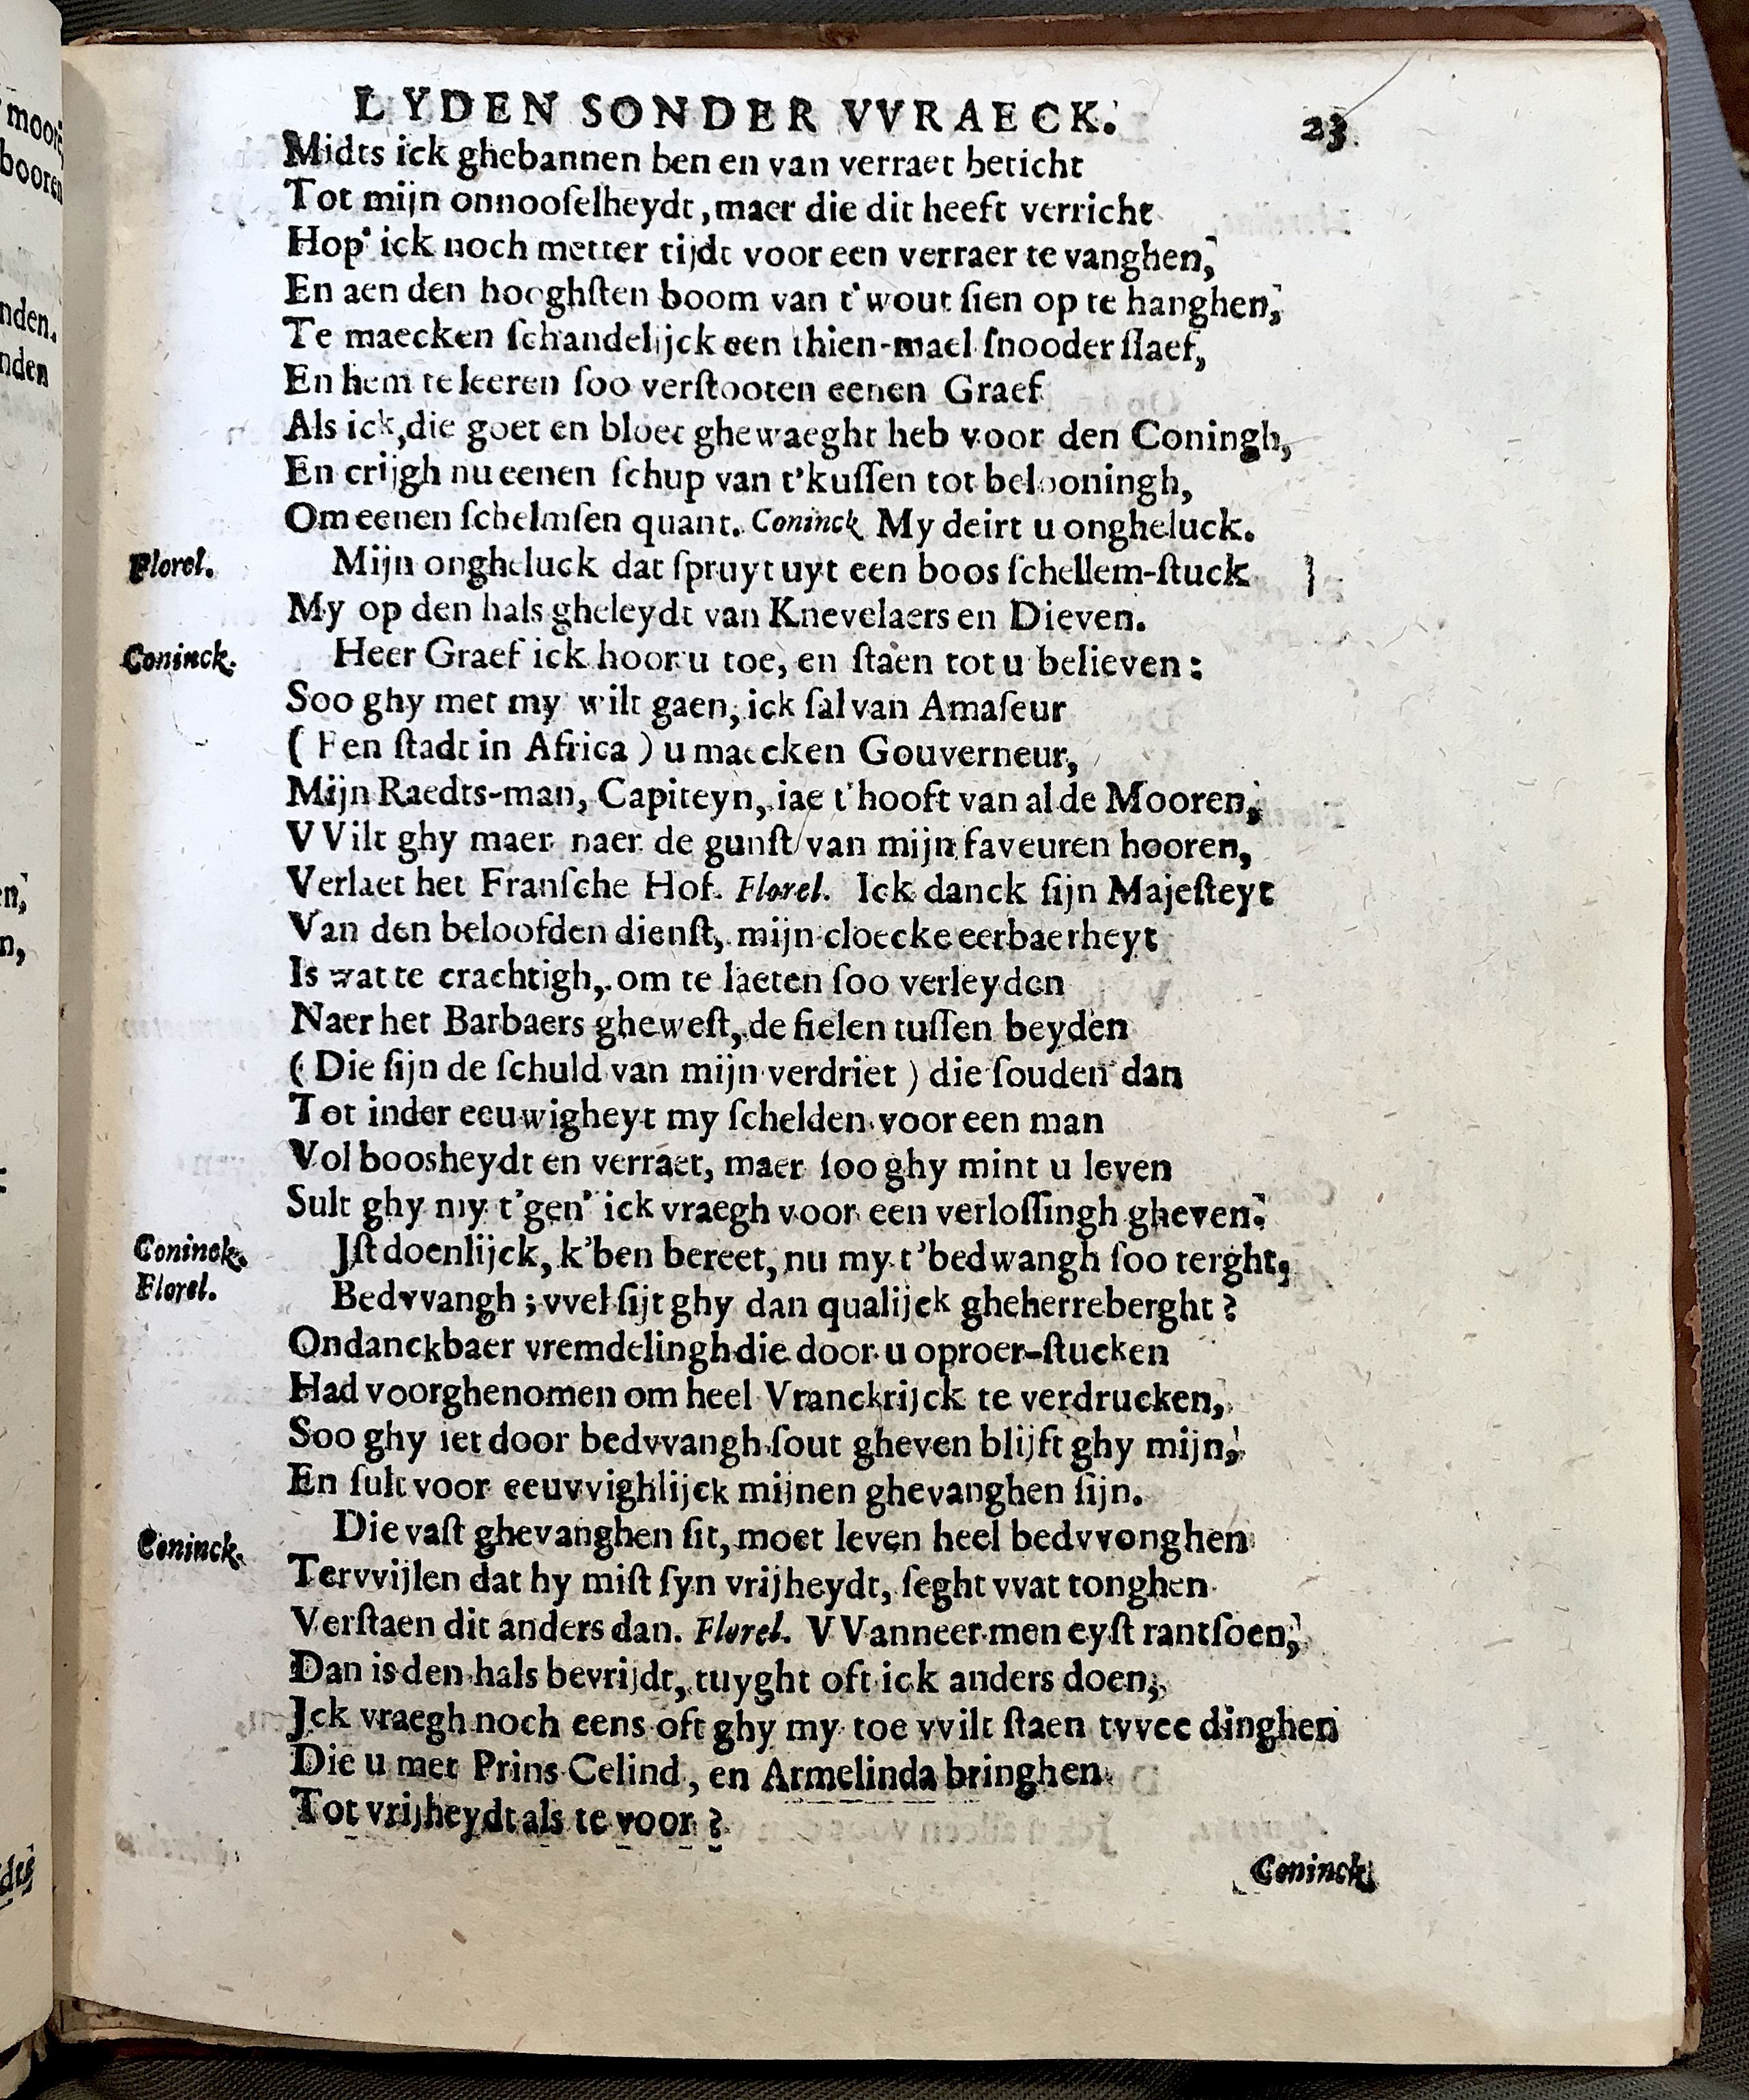 LYDEN SONDER VVRAECK. 23
Midts ick ghebannen ben en van verraet beticht
Tot mijn onnooſelheydt, maer die dit heeft verricht
Hop' ick noch metter tijdt voor een verraer te vanghen,
En aen den hooghſten boom van t'wout ſien op te hanghen,
Te maecken ſchandelijck een thien-mael ſnooder ſlaef,
En hem te leeren ſoo verſtooten eenen Graef
Als ick, die goet en bloet ghewaeght heb voor den Coningh,
En crijgh nu eenen ſchup van t'kuſſen tot belooningh,
Om eenen ſchelmſen quant. Coninck My deirt u ongheluck.
Florel. Mijn ongheluck dat ſpruyt uyt een boos ſchellem-ſtuck
My op den hals gheleydt van Knevelaers en Dieven.
Coninck. Heer Graef ick hoor u toe, en ſtaen tot u believen:
Soo ghy met my wilt gaen, ick ſal van Amaſeur
( Een ſtadt in Africa ) u maecken Gouverneur,
Mijn Raedts-man, Capiteyn, iae t'hooft van al de Mooren,
VVilt ghy maer naer de gunſt van mijn faveuren hooren,
Verlaet het Franſche Hof. Florel. Ick danck ſijn Majeſteyt
Van den beloofden dienſt, mijn cloecke eerbaerheyt
Is wat te crachtigh, om te laeten ſoo verleyden
Naer het Barbaers gheweſt, de fielen tuſſen beyden
( Die ſijn de ſchuld van mijn verdriet ) die ſouden dan
Tot inder eeuwigheyt my ſchelden voor een man
Vol boosheydt en verraet, maer ſoo ghy mint u leven
Sult ghy my t'gen' ick vraegh voor een verloſſingh gheven.
Coninck. Jſt doenlijck, k'ben bereet, nu my t'bedwangh ſoo terght,
Florel. Bedvvangh ; vvel ſijt ghy dan qualijck gheherreberght ?
Ondanckbaer vremdelingh die door u oproer-ſtucken
Had voorghenomen om heel Vranckrijck te verdrucken,
Soo ghy iet door bedvvangh ſout gheven blijft ghy mijn,
En ſult voor eeuvvighlijck mijnen ghevanghen ſijn.
Coninck. Die vaſt ghevanghen ſit, moet leven heel bedvvonghen
Tervvijlen dat hy miſt ſyn vrijheydt, ſeght vvat tonghen
Verſtaen dit anders dan. Florel. VVanneer men eyſt rantſoen,
Dan is den hals bevrijdt, tuyght oft ick anders doen;
Jck vraegh noch eens oft ghy my toe vvilt ſtaen tvvee dinghen
Die u met Prins Celind, en Armelinda bringhen
Tot vrijheydt als te voor ?
Coninck.